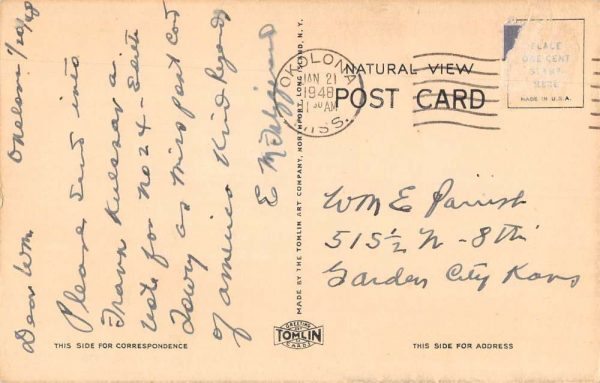 Okolona 1/20/48
Dear Wm
Please send into
Frank a
vote for No 24 - Edith
Lowry as Miss Post Card
of America Kind Regards
E
MADE BY THE TOMLIN ART COMPANY, NORTHPORT, LONG ISLAND, N. Y.
OKOLONA
JAN 21
1948
1 30 AM
MISS.
NATURAL VIEW
POST CARD
PLACE
ONE CENT
STAMP
HERE
MADE IN U.S.A.
Wm E Parrish
515½ N - 8th
Garden City Kans
GREETING
TOMLIN
CARDS
THIS SIDE FOR CORRESPONDENCE
THIS SIDE FOR ADDRESS